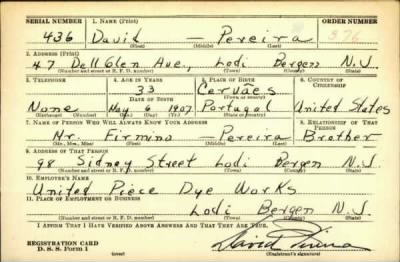 SERIAL NUMBER 1. NAME (Print) ORDER NUMBER
436 David — Pereira 376
(First) (Middle) (Last)
2. ADDRESS (Print)
47 Dell Glen Ave., Lodi Bergen N.J.
(Number and street or R. F. D. number) (Town) (County) (State)
3. TELEPHONE 4. AGE IN YEARS 5. PLACE OF BIRTH 6. COUNTRY OF CITIZENSHIP
33 Cervães
(Town or county)
DATE OF BIRTH
None May 6 1907 Portugal United States
(Exchange) (No.) (Mo.) (Day) (Yr.) (State or country)
7. NAME OF PERSON WHO WILL ALWAYS KNOW YOUR ADDRESS 8. RELATIONSHIP OF THAT PERSON
Mr. Firmino — Pereira Brother
(Mr., Mrs., Miss) (First) (Middle) (Last)
9. ADDRESS OF THAT PERSON
98 Sidney Street Lodi Bergen N.J.
(Number and street or R. F. D. number) (Town) (County) (State)
10. EMPLOYER'S NAME
United Piece Dye Works
11. PLACE OF EMPLOYMENT OR BUSINESS
Lodi Bergen N.J.
(Number and street or R. F. D. number) (Town) (County) (State)
I AFFIRM THAT I HAVE VERIFIED ABOVE ANSWERS AND THAT THEY ARE TRUE.
REGISTRATION CARD
D. S. S. Form 1 (over) David Pereira
(Registrant's signature)